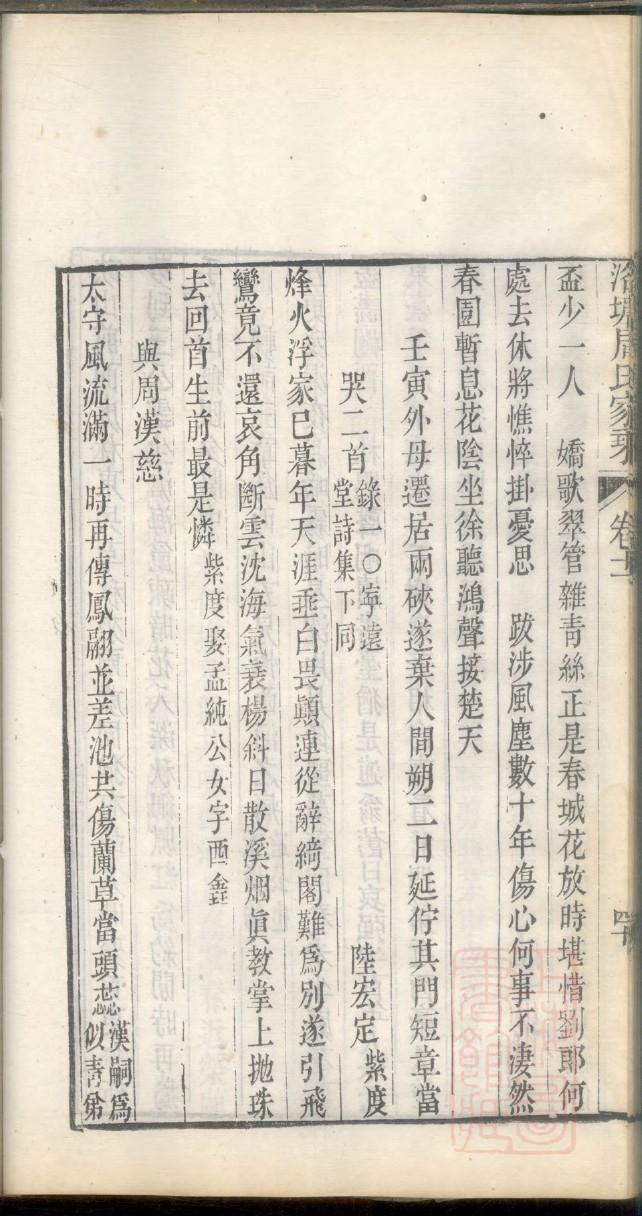 洛塘周氏家乘 卷十二 四十
盃少一人 嬌歌翠管雜青絲正是春城花放時堪惜劉郎何
處去休將憔悴掛憂思 跋涉風塵數十年傷心何事不淒然
春園暫息花陰坐徐聽鴻聲接楚天
壬寅外母遷居兩硤遂棄人間朔二日延佇其門短章當
哭二首錄一〇寧遠堂詩集下同 陸宏定紫度
烽火浮家已暮年天涯垂白畏顛連從辭綺閣難為別遂引飛
鸞竟不還哀角斷雲沈海氣衰楊斜日散溪烟眞教掌上抛珠
去回首生前最是憐紫度娶孟純公女字酉鑫
與周漢慈
太守風流滿一時再傳鳳翮並差池共傷蘭草當頭蕊漢嗣為似青弟